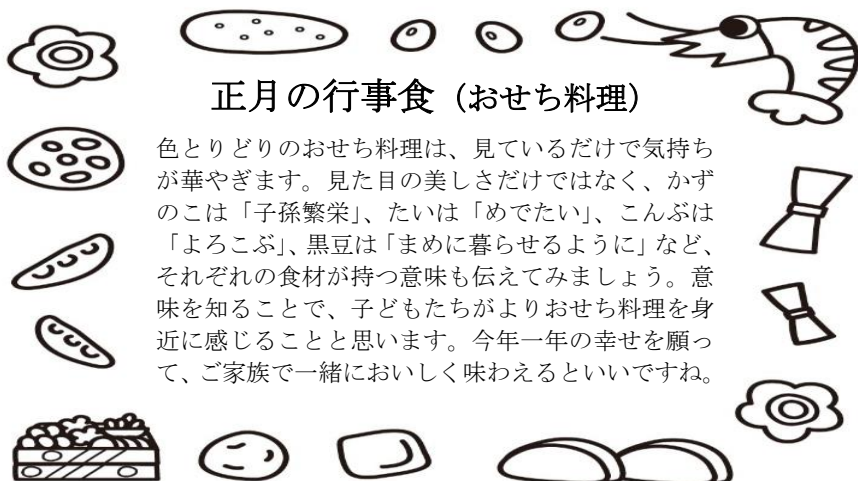 正月の行事食（おせち料理）
色とりどりのおせち料理は、見ているだけで気持ち
が華やぎます。見た目の美しさだけではなく、かず
のこは「子孫繁栄」、たいは「めでたい」、こんぶは
「よろこぶ」、黒豆は「まめに暮らせるように」など、
それぞれの食材が持つ意味も伝えてみましょう。意
味を知ることで、子どもたちがよりおせち料理を身
近に感じることと思います。今年一年の幸せを願っ
て、ご家族で一緒においしく味わえるといいですね。